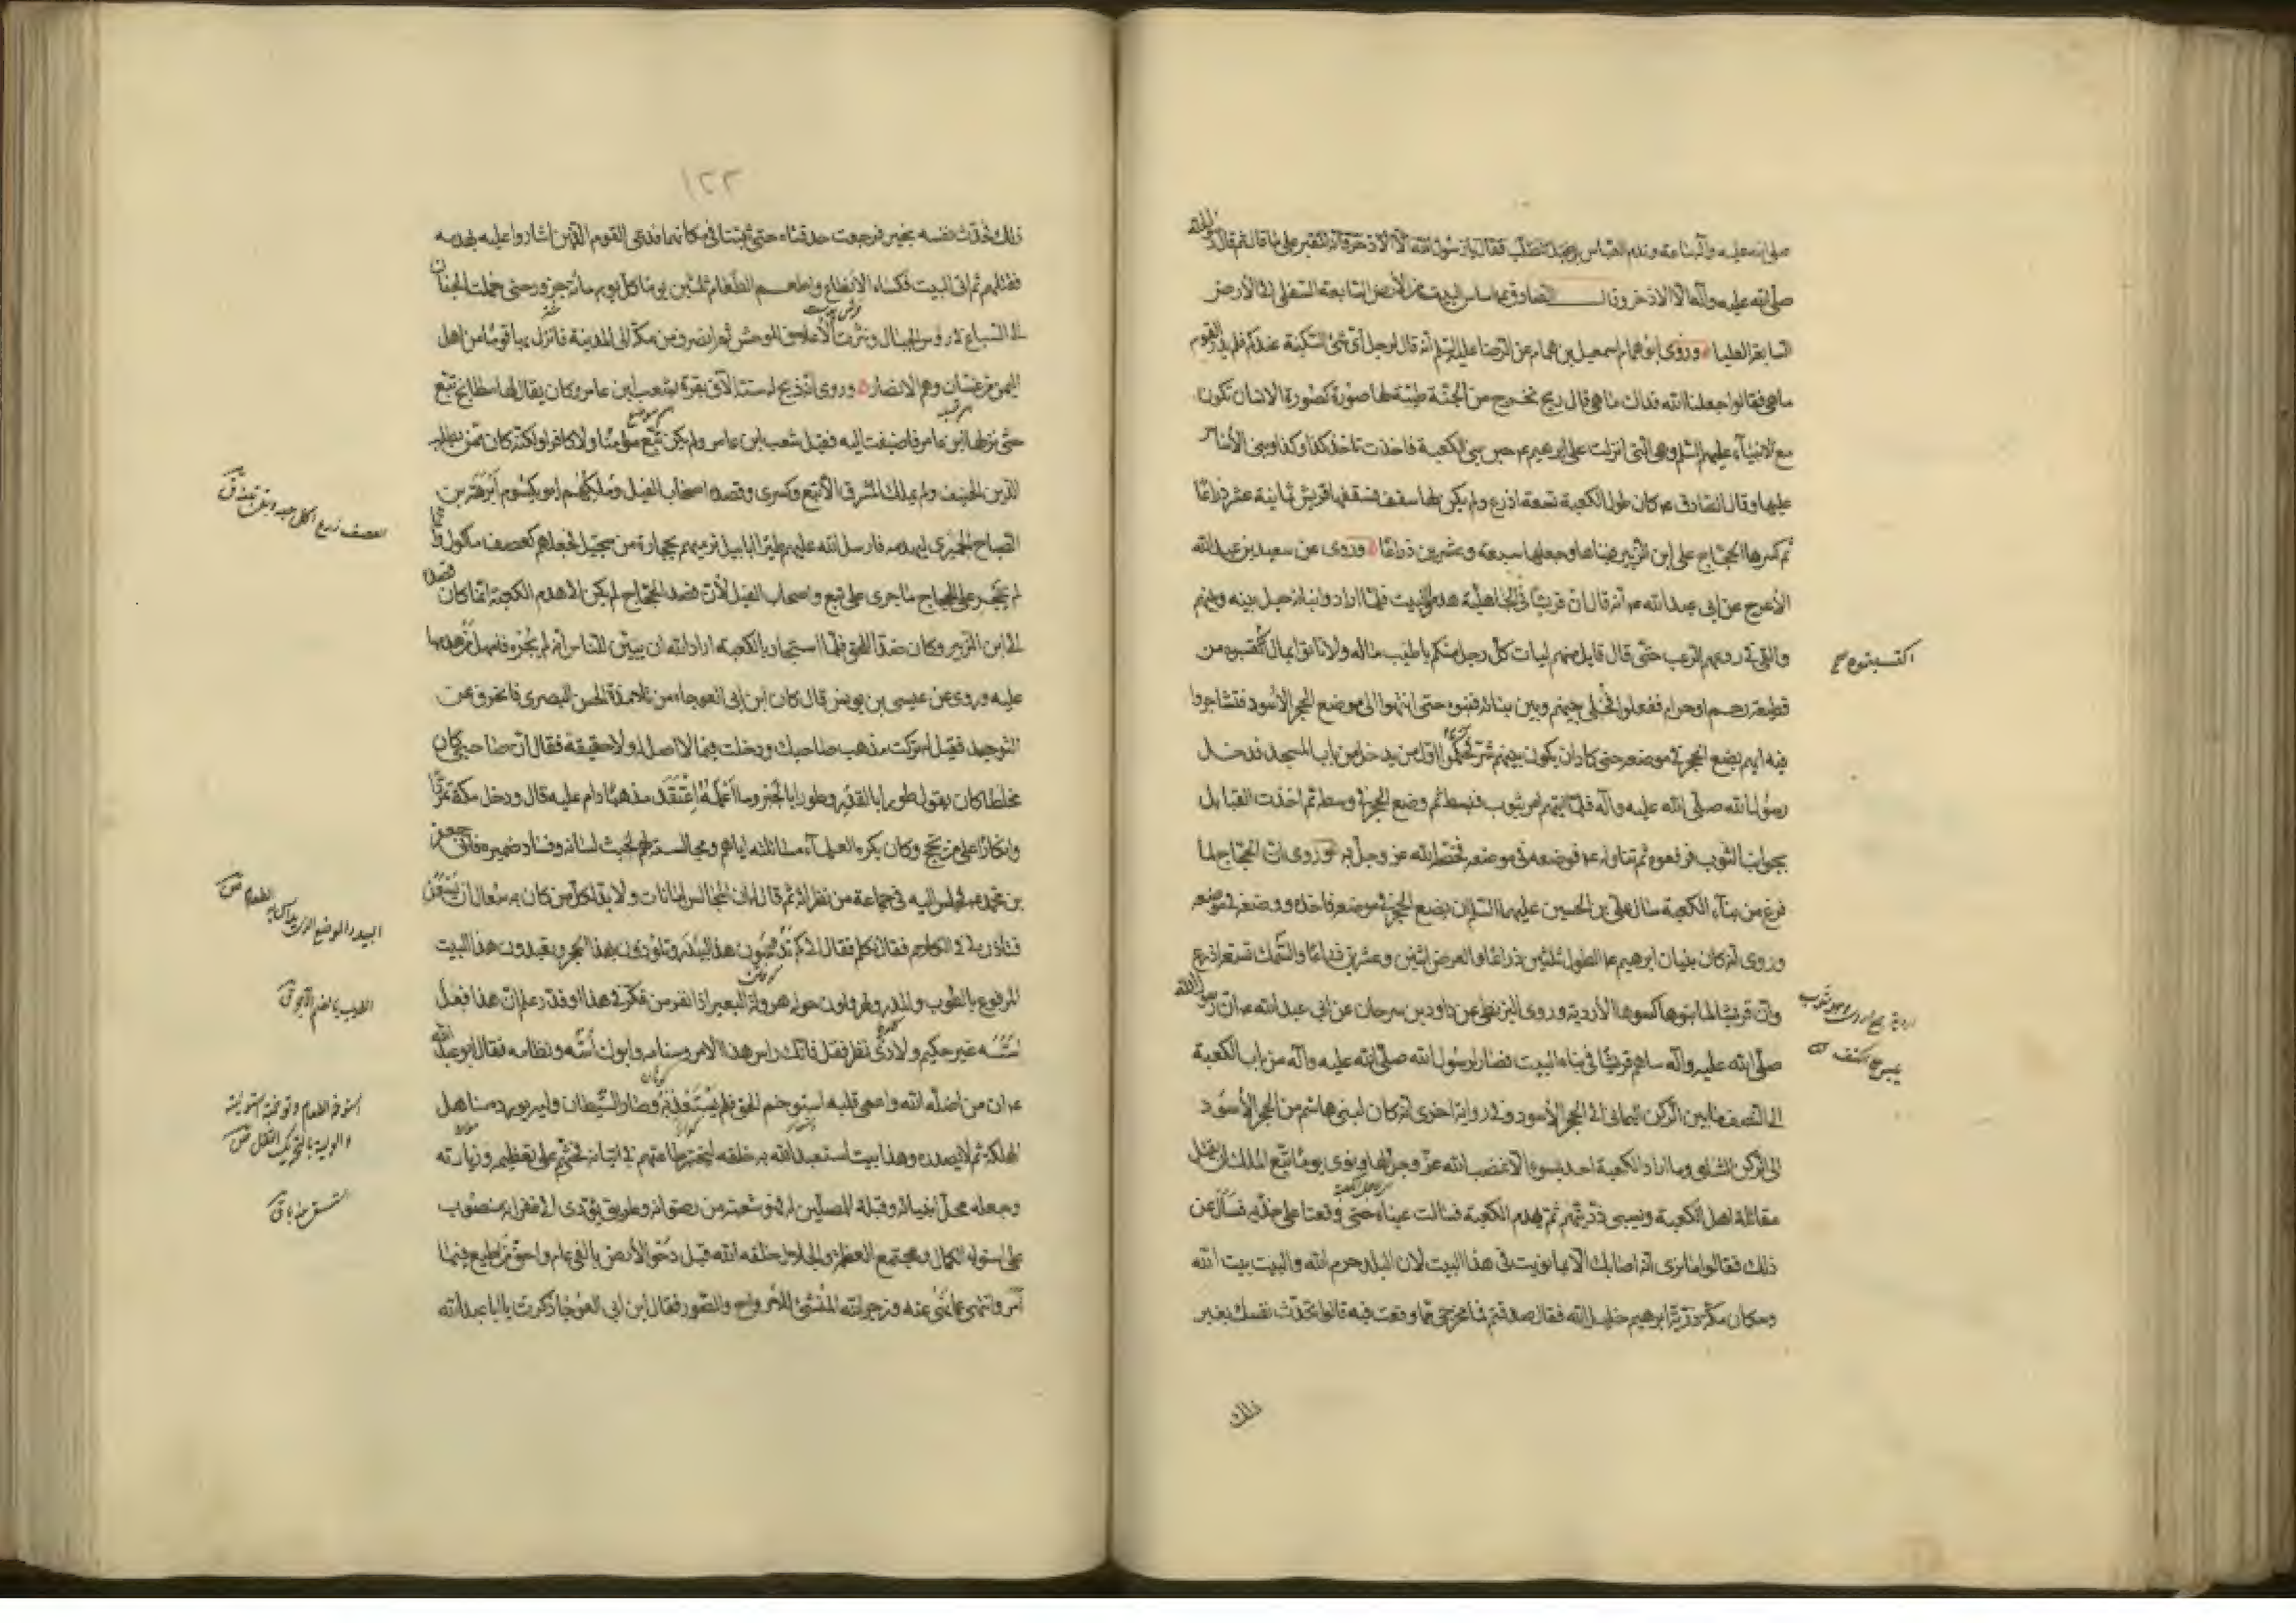 صلى الله عليه وآله ساعة وندم العباس بن عبد المطلب فقال يا رسول الله الا الاذخر فانه للقبر على ما قال ثم قال رسول الله
صلى الله عليه وآله الا الاذخر وقال الصادق ع اساس البيت من الأرض السابعة السفلى الى الأرض
السابعة العليا وروى ابو همام اسمعيل بن همام عن الرضا عليه السلم انه قال لرجل اي شئ السكينة عندكم فلم يدر القوم
ما هي فقالوا جعلنا الله فداك ما هي قال ريح تخرج من الجنة طيبة لها صورة كصورة الانسان تكون
مع الانبياء عليهم السلم وهي التي انزلت على ابرهيم ع حين بنى الكعبة فاخذت تاخذ كذا وكذا وبنى الأساس
عليها وقال الصادق ع كان طول الكعبة تسعة اذرع ولم يكن لها سقف فسقفها قريش ثمانية عشر ذراعا
ثم كسرها الحجاج على ابن الزبير فبناها وجعلها سبعة وعشرين ذراعا وروى عن سعيد بن عبد الله
الأعرج عن ابي عبد الله ع انه قال ان قريشا في الجاهلية هدموا البيت فلما ارادوا بناءه حيل بينه وبينهم
والقي في روعهم الرعب حتى قال قايل منهم ليات كل رجل منكم باطيب ماله ولا تاتوا بمال اكتسبتموه من
قطيعة رحم او حرام ففعلوا فخلى بينهم وبين بنائه فبنوه حتى انتهوا الى موضع الحجر الأسود فتشاجروا
فيه ايهم يضع الحجر في موضعه حتى كاد ان يكون بينهم شر فحكموا اول من يدخل من باب المسجد فدخل
رسول الله صلى الله عليه وآله فلما اتيهم امر بثوب فبسط ثم وضع الحجر في وسطه ثم اخذت القبايل
بجوانب الثوب فرفعوه ثم تناوله ع فوضعه في موضعه فخصه الله عز وجل به وروى ان الحجاج لما
فرغ من بناء الكعبة سال علي بن الحسين عليهما السلم ان يضع الحجر في موضعه فاخذه ووضعه في موضعه
وروى انه كان بنيان ابرهيم ع الطول ثلثين ذراعا والعرض اثنين وعشرين ذراعا والسمك تسعة اذرع
وان قريشا لما بنوها كسوها الأردية وروى البزنطي عن داود بن سرحان عن ابي عبد الله ع ان رسول الله
صلى الله عليه وآله ساهم قريشا في بناء البيت فصار لرسول الله صلى الله عليه وآله من باب الكعبة
الى النصف ما بين الركن اليماني الى الحجر الأسود وفي رواية اخرى انه كان لبني هاشم من الحجر الأسود
الى الركن الشامي وما اراد الكعبة احد بسوء الا غضب الله عز وجل لها ونوى يوما تبع الملك ان يقتل
مقاتلة اهل الكعبة ويسبي ذريتهم ثم يهدم الكعبة فسالت عيناه حتى وقعتا على خديه فسأل عن
ذلك فقالوا ما نرى الذي اصابك الا بما نويت في هذا البيت لان البلد حرم الله والبيت بيت الله
وسكان مكة ذرية ابرهيم خليل الله فقال صدقتم فما مخرجي مما وقعت فيه قالوا تحدث نفسك بغير
اكتسبتموه
ذلك
١٢٢
ذلك فحدث نفسه بخير فرجعت حدقتاه حتى ثبتتا في مكانهما فدعى القوم الذين اشاروا عليه بهدمه
فقتلهم ثم اتى البيت فكساه الانطاع واطعم الطعام ثلثين يوما كل يوم مائة جزور حتى حملت الجفان
الى السباع في رؤس الجبال ونثرت الأعلاف للوحش ثم انصرف من مكة الى المدينة فانزل بها قوما من اهل
اليمن من غسان وهم الانصار وروى انه ذبح له ستة الآف بقرة بشعب ابن عامر وكان يقال لها مطابخ تبع
حتى نزلها ابن عامر فاضيفت اليه فقيل شعب ابن عامر ولم يكن تبع مؤمنا ولا كافرا ولكنه كان ممن يطلب
الدين الحنيف ولم يملك المشرق الا تبع وكسرى وقصده اصحاب الفيل وملكهم ابو يكسوم ابرهة بن
الصباح الحميري ليهدمه فارسل الله عليهم طيرا ابابيل ترميهم بحجارة من سجيل فجعلهم كعصف مأكول وانما
لم يجر على الحجاج ما جرى على تبع واصحاب الفيل لأن قصد الحجاج لم يكن الى هدم الكعبة انما كان قصده
الى ابن الزبير وكان ضدا للحق فلما استجار بالكعبة اراد الله ان يبين للناس انه لم يجره فامهل من هدمها
عليه وروى عن عيسى بن يونس قال كان ابن ابي العوجاء من تلامذة الحسن البصري فانحرف عن
التوحيد فقيل له تركت مذهب صاحبك ودخلت فيما لا اصل له ولا حقيقة فقال ان صاحبي كان
مخلطا كان يقول طورا بالقدر وطورا بالجبر وما اعلمه اعتقد مذهبا دام عليه قال ودخل مكة تمردا
وانكارا على من يحج وكان يكره العلماء مسائلته اياهم ومجالسته لهم لخبث لسانه وفساد ضميره فاتى جعفر
بن محمد ع فجلس اليه في جماعة من نظرائه ثم قال له ان المجالس امانات ولا بد لكل من كان به سعال ان يسعل
فتاذن لي في الكلام فقال تكلم فقال الى كم تدوسون هذا البيدر وتلوذون بهذا الحجر وتعبدون هذا البيت
المرفوع بالطوب والمدر وتهرولون حوله هرولة البعير اذا نفر من فكر في هذا او قدر علم ان هذا فعل
اسسه غير حكيم ولا ذي نظر فقل فانك راس هذا الامر وسنامه وابوك اسه ونظامه فقال ابو عبد الله
ع ان من اضله الله واعمى قلبه استوخم الحق فلم يستعذبه وصار الشيطان وليه يورده مناهل
الهلكة ثم لا يصدره وهذا بيت استعبد الله به خلقه ليختبر طاعتهم في اتيانه فحثهم على تعظيمه وزيارته
وجعله محل انبيائه وقبلة للمصلين له فهو شعبة من رضوانه وطريق يؤدي الى غفرانه منصوب
على استواء الكمال ومجتمع العظمة والجلال خلقه الله قبل دحو الأرض بالفي عام واحق من اطيع فيما
امر وانتهى عما نهى عنه وزجر الله المنشئ للأرواح والصور فقال ابن ابي العوجا ذكرت يا ابا عبد الله